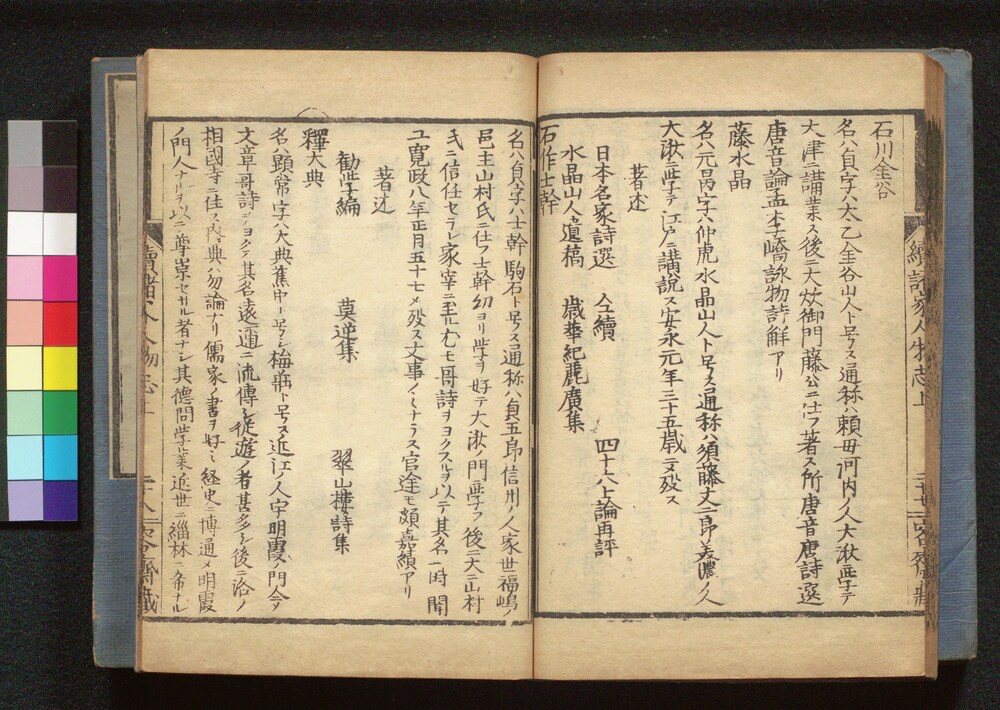 石川金谷
名ハ貞字ハ太乙金谷山人ト号ス通称ハ頼母河内ノ人大湫ニ学テ
大津ニ講業ス後ニ大炊御門藤公ニ仕フ著ス所唐音唐詩選
唐音論孟李嶠詠物詩解アリ
藤水晶
名ハ元昺字ハ仲虎水晶山人ト号ス通称ハ須藤丈二郎美濃ノ人
大湫ニ学テ江戸ニ講説ス安永元年三十五歳ニテ殁ス
著述
日本名家詩選 仝續 四十六上論再評
水晶山人遺稿 歳華紀麗廣集
石作士幹
名ハ貞字ハ士幹駒石ト号ス通称ハ貞五郎信州ノ人家世福嶋ノ
邑主山村氏ニ仕フ士幹幼ヨリ学ヲ好テ大湫ノ門ニ学フ後ニ大ニ山村
氏ニ信任セラレ家宰ニ至ル尤モ哥詩ヲヨクスルヲ以テ其名一時ニ聞
ユ寛政八年正月五十七ニメ殁ス文事ノミナラス官途モ頗嘉績アリ
著述
勧学編 莫逆集 翠山樓詩集
釋大典
名ハ顕常字ハ大典蕉中ト号シ梅荘ト号ス近江ノ人宇明霞ノ門
文章哥詩ヲヨクシ其名遠邇ニ流傳シ從遊ノ者甚多シ後ニ洛ノ
相國寺ニ住ス内典ハ勿論ナリ儒家ノ書ヲ好ミ経史ニ博通メ明霞
ノ門人ナルヲ以ニ尊崇セサル者ナシ其德問学業近世ニ緇林ニ希ナル
續諸家人物志上